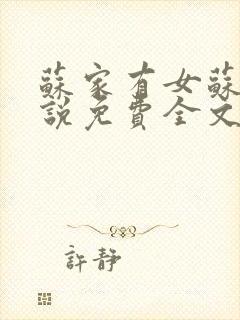 蘇家有女蘇
說免費全文
許靜